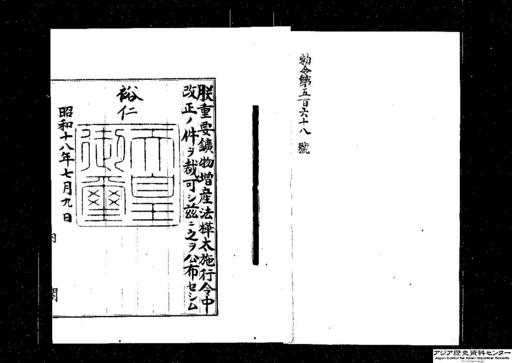 勅令第五百六十八號
朕重要鑛物增産法樺太施行令中
改正ノ件ヲ裁可シ茲ニ之ヲ公布セシム
裕仁
天皇御璽
昭和十八年七月九日
内閣
アジア歴史資料センター
Japan Center for Asian Historical Records